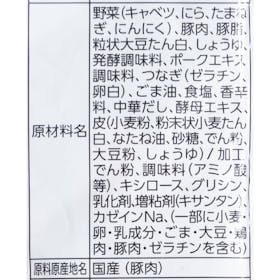 野菜(キャベツ、にら、たまね
ぎ、にんにく)、豚肉、豚脂、
粒状大豆たん白、しょうゆ、
発酵調味料、ポークエキス
調味料、つなぎ(ゼラチン、
卵白)、ごま油、食塩、香辛
料、中華だし、酵母エキス、
皮(小麦粉、粉末状小麦たん
白、なたね油、砂糖、でん粉、
大豆粉、しょうゆ)/加工
でん粉、調味料(アミノ酸
等)、キシロース、グリシン、
乳化剤、増粘剤(キサンタン)、
カゼインNa、(一部に小麦・
卵・乳成分・ごま・大豆・鶏
肉・豚肉・ゼラチンを含む)
原材料名
原料原産地名 国産(豚肉)